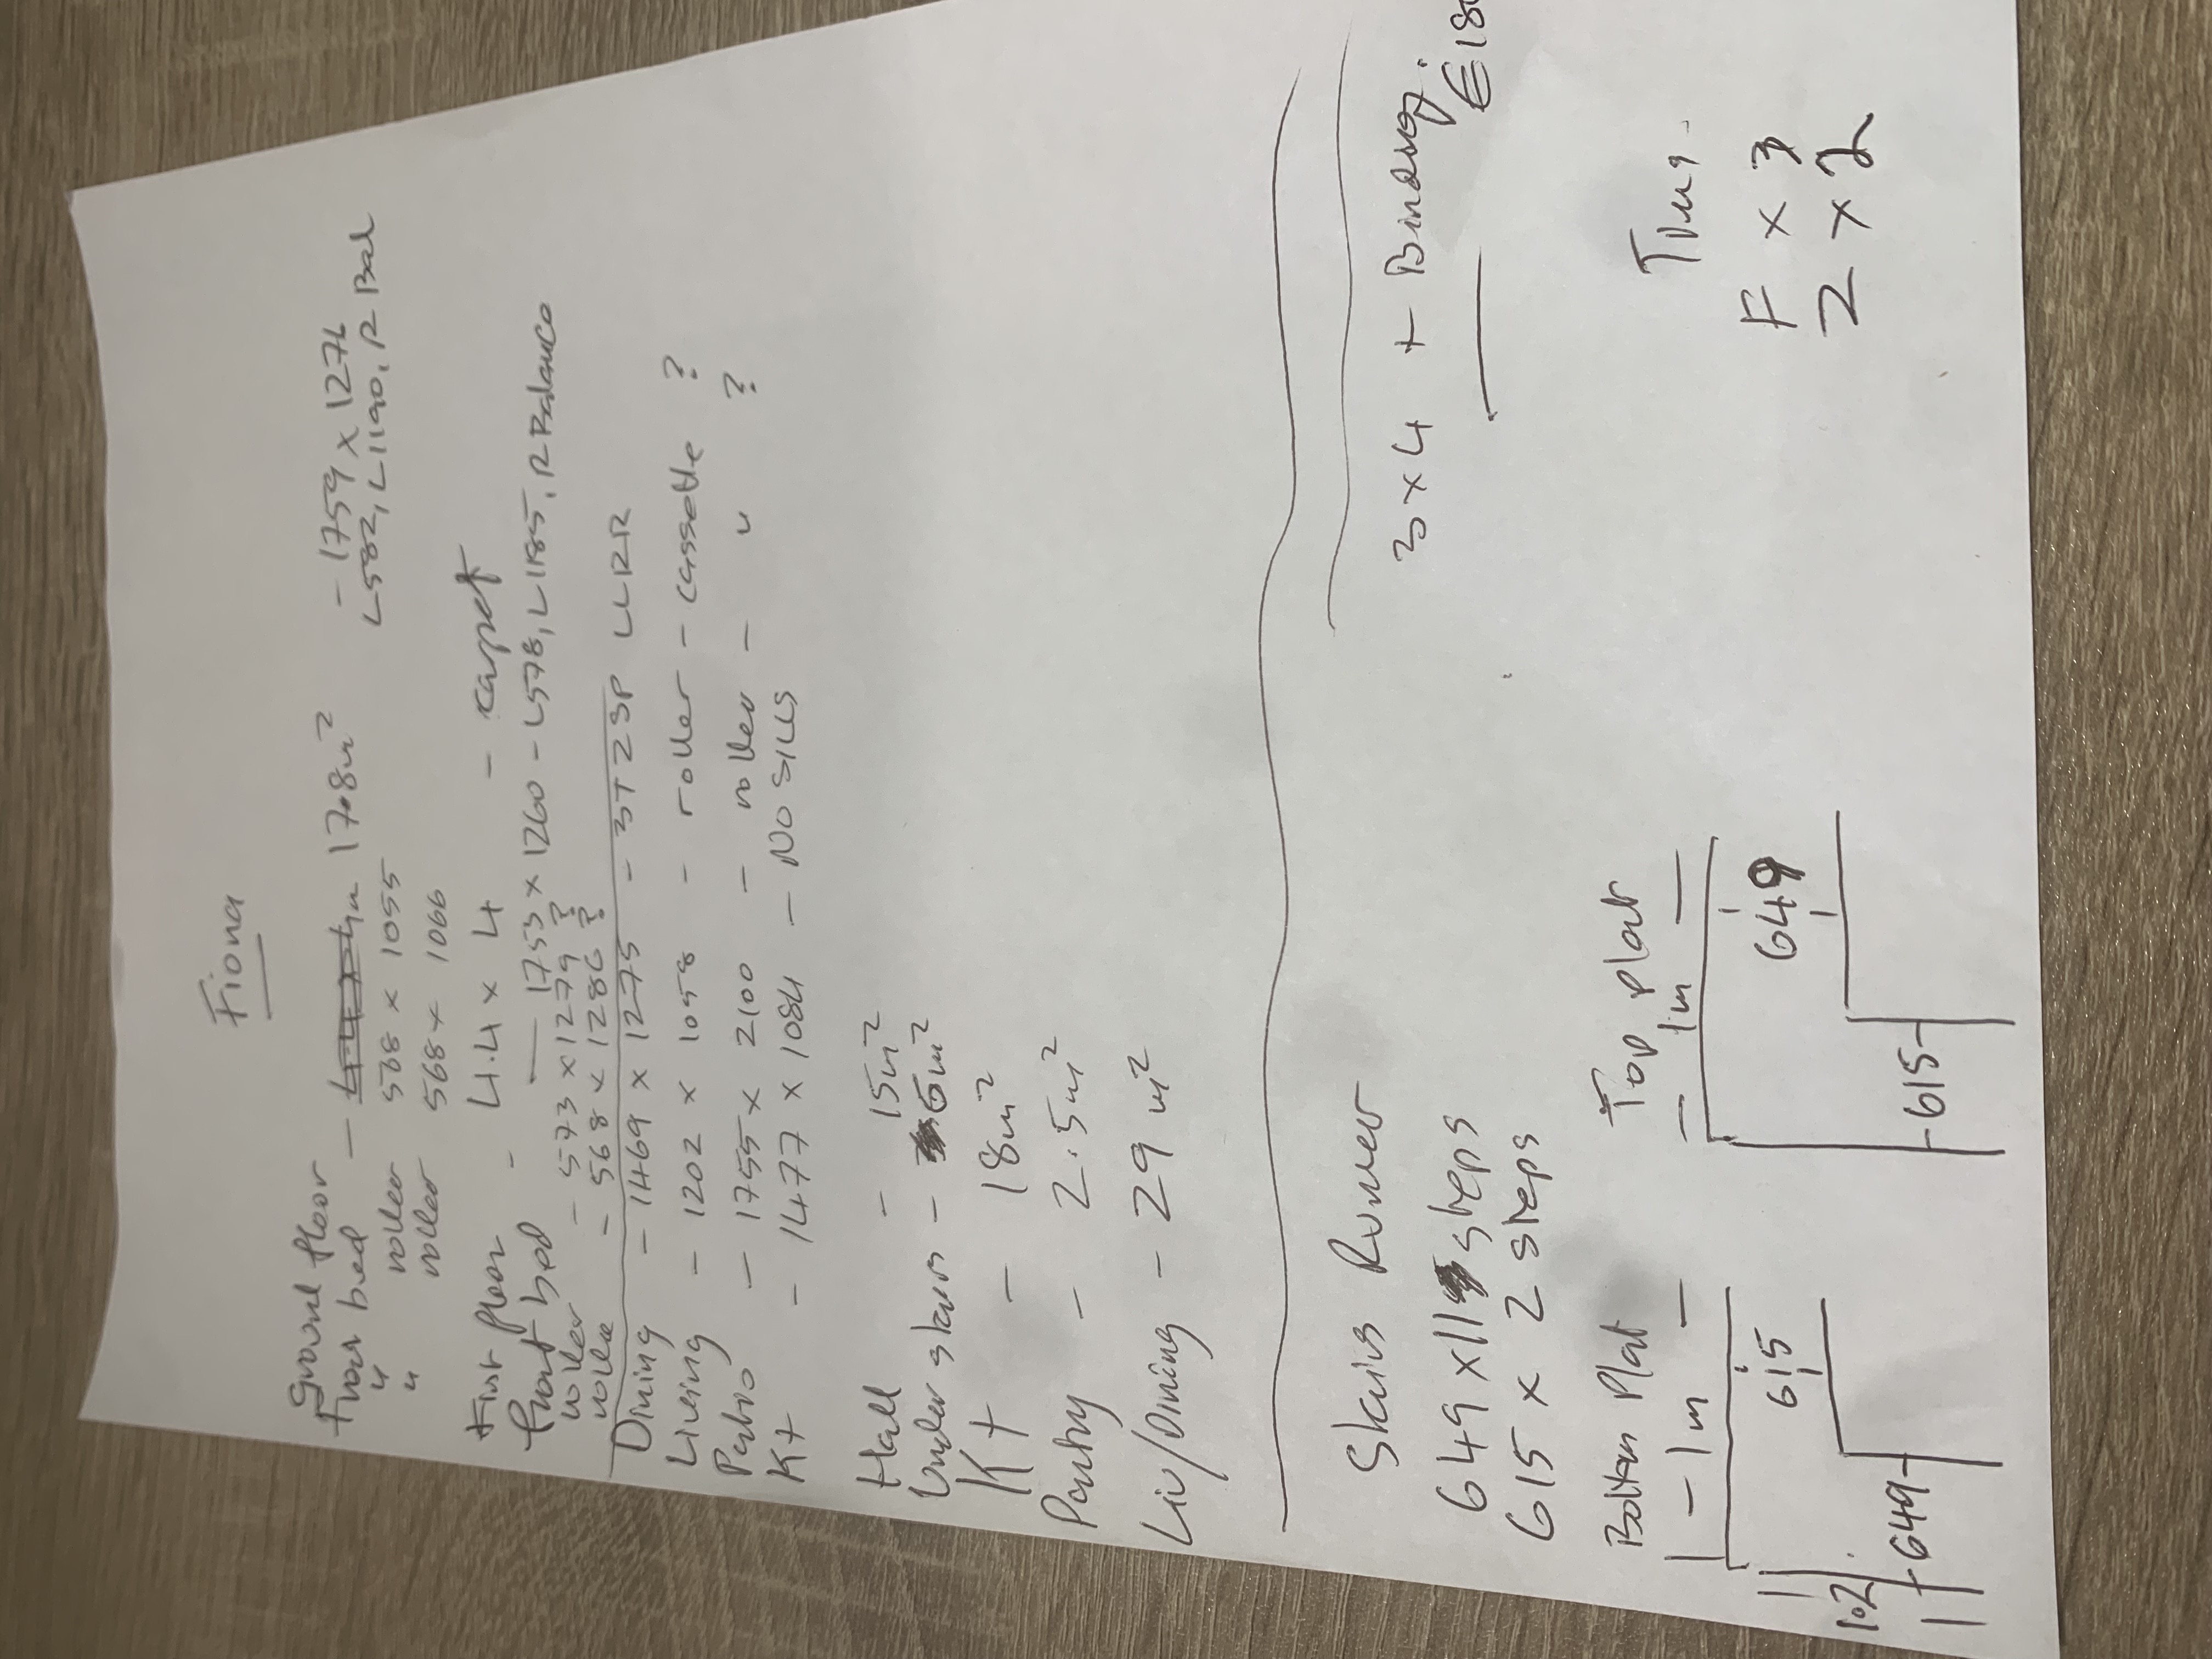 Fiona
Ground floor
Front bed - 17.8m² - 1759 x 1276
L582, L1190, R Bal
" roller 568 x 1055
" roller 568 x 1066
First floor - 4.4 x 4 - carpet
front bed - 1753 x 1260 - L578, L1185, R Balance
roller - 573 x 1279 ?
roller - 568 x 1286 ?
Dining - 1469 x 1275 - 3T2SP LLRR
Living - 1202 x 1058 - roller - cassette ?
Patio - 1755 x 2100 - roller - " ?
Kt - 1477 x 1084 - NO SILLS
Hall - 15m²
Under stairs - 6m²
Kt - 18m²
Pantry - 2.5m²
Liv/Dining - 29m²
Stairs Runner
3x4 + Binding.
649 x 11 steps
615 x 2 steps
Bottom Plat
- 1m -
615
1.2
649
Top plat
- 1m -
649
615
F x 3
2 x 2